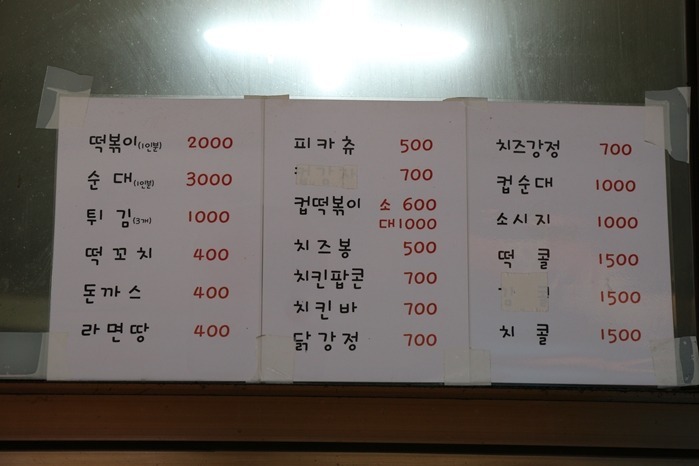 떡볶이(1인분) 2000
순대(1인분) 3000
튀김(3개) 1000
떡꼬치 400
돈까스 400
라면땅 400
피카츄 500
700
컵떡볶이 소 600
대 1000
치즈봉 500
치킨팝콘 700
치킨바 700
닭강정 700
치즈강정 700
컵순대 1000
소시지 1000
떡콜 1500
1500
치콜 1500